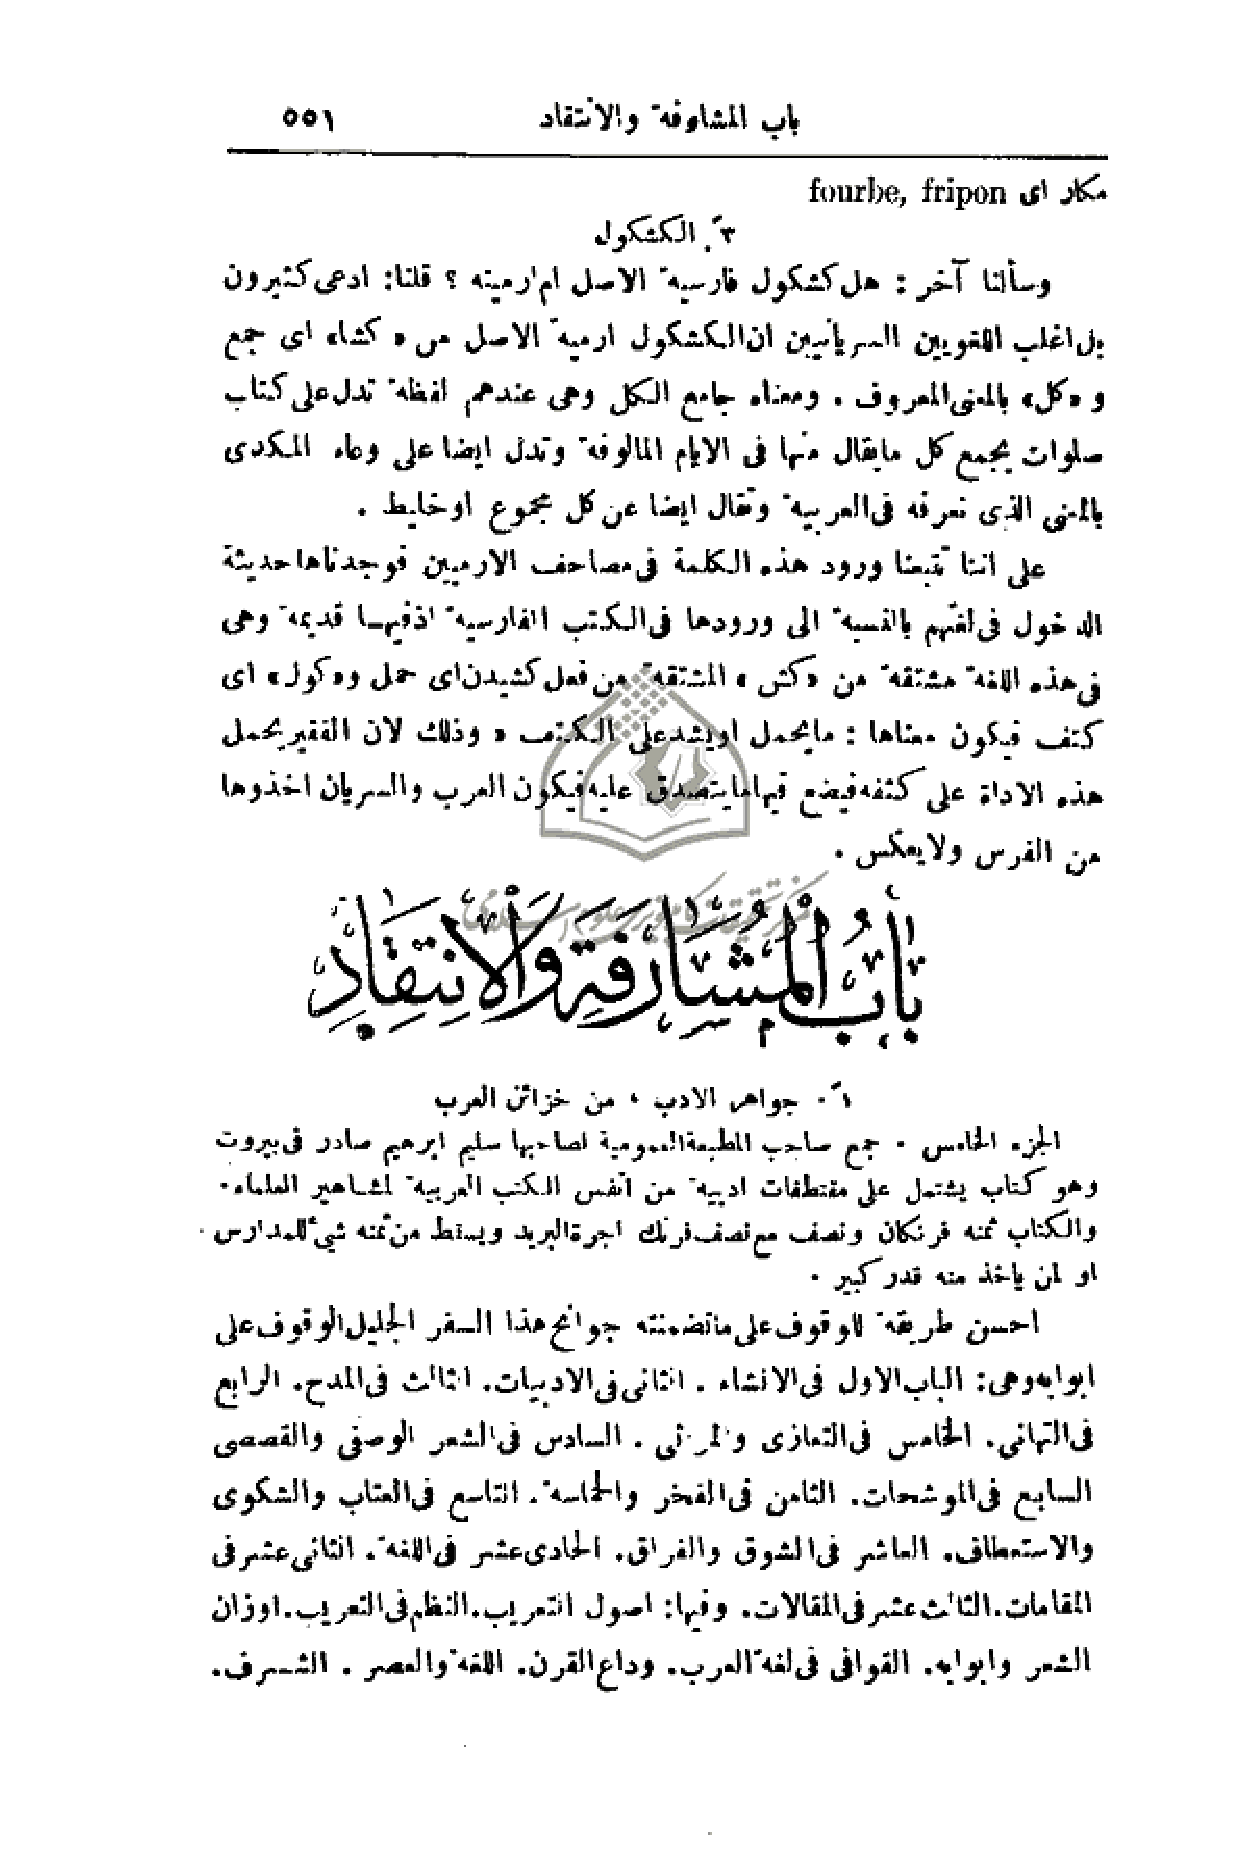 باب المشارفة والانتقاد ٥٥١
مكار اى fourbe, fripon
٣. الكشكول
وسألنا آخر : هل كشكول فارسية الاصل ام ارمية ؟ قلنا: ادعى كثيرون
بل اغلب اللغويين السريانيين ان الكشكول ارمية الاصل من « كشا» اى جمع
و «كل» بالمعنى المعروف . ومعناه جامع الكل وهى عندهم لفظة تدل على كتاب
صلوات يجمع كل ما يقال منها فى الايام المالوفة وتدل ايضا على وعاء المكدى
بالمعنى الذى نعرفه فى العربية وتقال ايضا عن كل مجموع او خليط .
على اننا تتبعنا ورود هذه الكلمة فى مصاحف الارميين فوجدناها حديثة
الدخول فى لغتهم بالنسبة الى ورودها فى الكتب الفارسية اذ فيها قديمة وهى
فى هذه اللغة مشتقة من «كش » المشتقة من فعل كشيدن اى حمل و«كول» اى
كتف فيكون معناها : ما يحمل او يشد على الكتف » وذلك لان الفقير يحمل
هذه الاداة على كتفه فيضع فيها ما يتصدق عليه فيكون العرب والسريان اخذوها
من الفرس ولا يعكس .
باب المشارفة والانتقاد
١. - جواهر الادب ، من خزائن العرب
الجزء الخامس . جمع صاحب المطبعة العمومية لصاحبها سليم ابرهيم صادر فى بيروت
وهو كتاب يشتمل على مقتطفات ادبية من انفس الكتب العربية لمشاهير العلماء.
والكتاب ثمنه فرنكان ونصف مع نصف فرنك اجرة البريد ويسقط من ثمنه شيئ للمدارس
او لمن ياخذ منه قدر كبير .
احسن طريقة للوقوف على ما تضمنته جوانح هذا السفر الجليل الوقوف على
ابوابه وهى: الباب الاول فى الانشاء . الثانى فى الادبيات. الثالث فى المدح. الرابع
فى التهانى. الخامس فى التعازى والمراثى . السادس فى الشعر الوصفى والقصصى
السابع فى الموشحات. الثامن فى الفخر والحماسة. التاسع فى العتاب والشكوى
والاستعطاف. العاشر فى الشوق والفراق. الحادى عشر فى اللغة. الثانى عشر فى
المقامات. الثالث عشر فى المقالات. وفيها: اصول التعريب. النظم فى التعريب. اوزان
الشعر وابوابه. القوافى فى لغة العرب. وداع القرن. اللغة والعصر . الشرف.